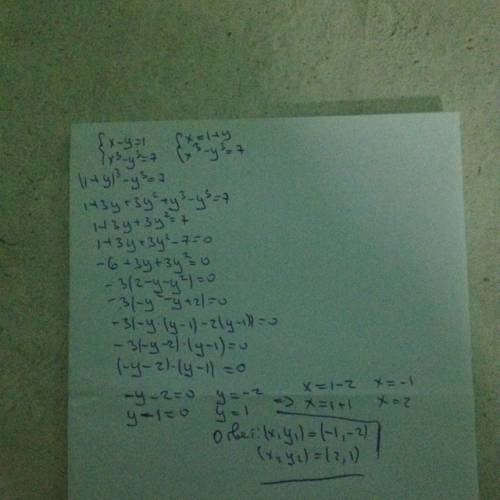 {x-y=1 {x=1+y
{x³-y³=7 {x³-y³=7
(1+y)³-y³=7
1+3y+3y²+y³-y³=7
1+3y+3y²=7
1+3y+3y²-7=0
-6+3y+3y²=0
-3(2-y-y²)=0
-3(-y²-y+2)=0
-3(-y·(y-1)-2(y-1))=0
-3(-y-2)·(y-1)=0
(-y-2)·(y-1)=0
-y-2=0 y=-2 => x=1-2 x=-1
y-1=0 y=1 x=1+1 x=2
Ответ: (x,y₁)=(-1,-2)
(x₂y₂)=(2,1)